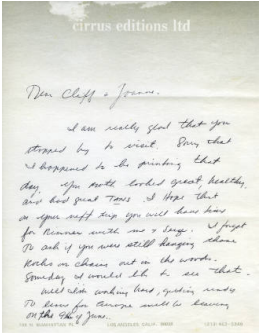 cirrus editions ltd
Dear Cliff & Joanne.
I am really glad that you
stopped by to visit. Sorry that
I happened to be printing that
day. You both looked great, healthy,
and had great Tans. I Hope that
on your next trip you will have time
for dinner with me &
I forgot
To ask if you were still hanging those
Rocks on chains out in the woods.
Someday I would like to see that.
Well I am working hard, getting ready
To leave for Europe will be leaving
on the of June.
LOS ANGELES CALIF.